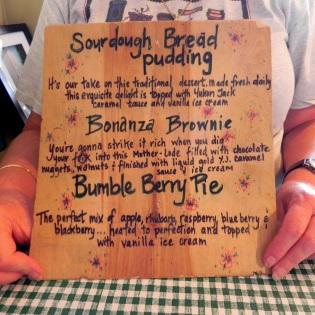 Sourdough Bread
pudding
It's our take on this traditional dessert. made fresh daily
this exquisite delight is topped with Yukon Jack
caramel sauce and vanilla ice cream
Bonanza Brownie
You're gonna strike it rich when you dig
your fork into this Mother-Lode filled with chocolate
nuggets, walnuts & finished with liquid gold Y.J. caramel
sauce & ice cream
Bumble Berry Pie
The perfect mix of apple, rhubarb, raspberry, blueberry &
blackberry... heated to perfection and topped
with vanilla ice cream